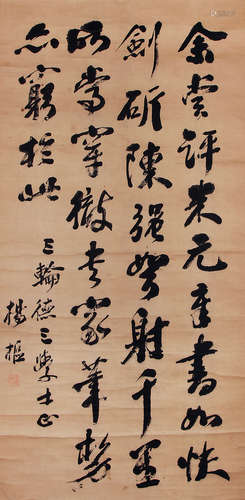 余嘗評米元章書如快
劍斫陳强弩射千里
所當穿徹書家筆勢
亦窮於此
三輪德三學士正
楊樞